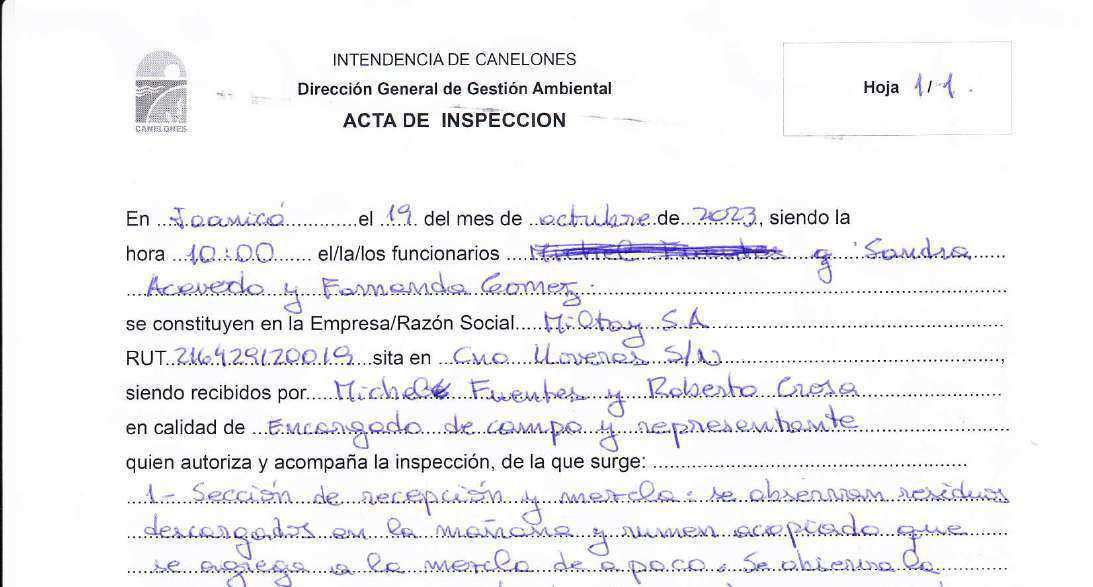 INTENDENCIA DE CANELONES
Dirección General de Gestión Ambiental
ACTA DE INSPECCION
Hoja 1/1.
CANELONES
En Joanicó el 19 del mes de octubre de 2023, siendo la
hora 10:00 el/la/los funcionarios y Sandra
Acevedo y Fernanda Gomez.
se constituyen en la Empresa/Razón Social Miltay S.A
RUT 216429120019 sita en Cno Lloveras S/N,
siendo recibidos por Michel Fuentes y Roberto Crosa
en calidad de Encargado de campo y representante
quien autoriza y acompaña la inspección, de la que surge:
1- Sección de recepción y mezcla: se observan residuos
descargados en la mañana y rumen acopiado que
se agrega a la mezcla de a poco. Se observa la